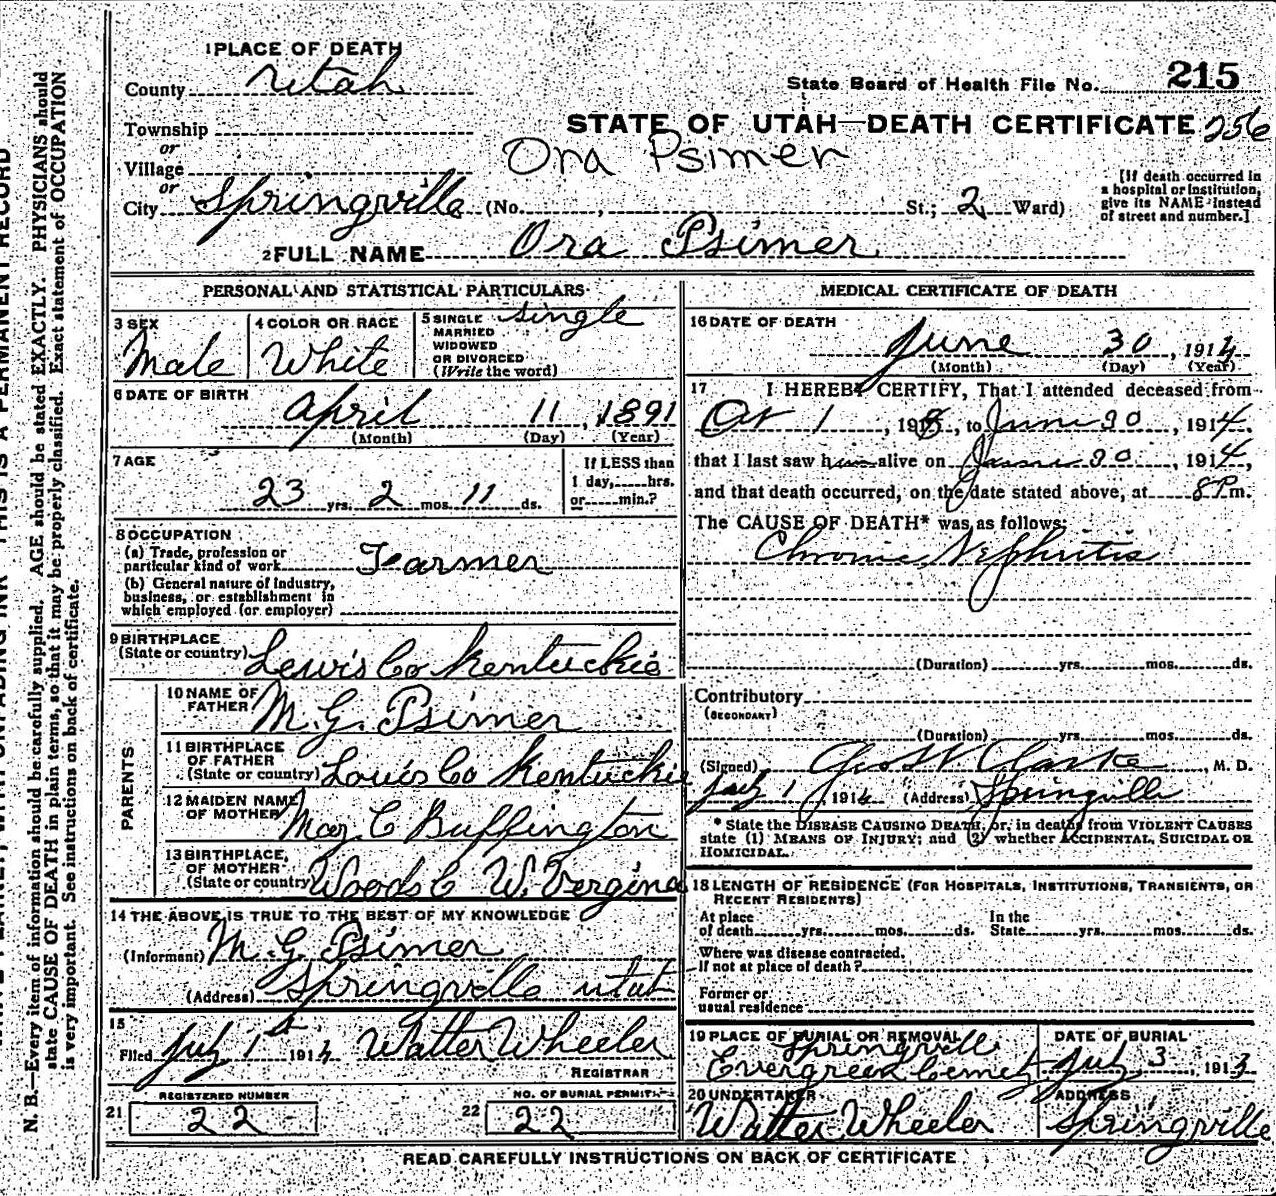 1 PLACE OF DEATH
County Utah
State Board of Health File No. 215
Township
STATE OF UTAH—DEATH CERTIFICATE 256
or
Village
Ora Psimer
or
City Springville (No. , St.; 2 Ward)
[If death occurred in
a hospital or institution,
give its NAME instead
of street and number.]
2 FULL NAME Ora Psimer
PERSONAL AND STATISTICAL PARTICULARS
3 SEX
Male
4 COLOR OR RACE
White
5 SINGLE
MARRIED
WIDOWED
OR DIVORCED
(Write the word)
single
6 DATE OF BIRTH
April 11, 1891
(Month) (Day) (Year)
7 AGE
23 yrs. 2 mos. 11 ds.
If LESS than
1 day, hrs.
or min.?
8 OCCUPATION
(a) Trade, profession or
particular kind of work Farmer
(b) General nature of industry,
business, or establishment in
which employed (or employer)
9 BIRTHPLACE
(State or country) Lewis Co Kentuckie
PARENTS
10 NAME OF
FATHER M. G. Psimer
11 BIRTHPLACE
OF FATHER
(State or country) Louis Co Kentuckie
12 MAIDEN NAME
OF MOTHER Mag. C Buffington
13 BIRTHPLACE
OF MOTHER
(State or country) Woods C W. Vergina
14 THE ABOVE IS TRUE TO THE BEST OF MY KNOWLEDGE
(Informant) M. G. Psimer
(Address) Springville utah
15
Filed July 1st 1914 Walter Wheeler
REGISTRAR
REGISTERED NUMBER
21 22
NO. OF BURIAL PERMIT
22 22
MEDICAL CERTIFICATE OF DEATH
16 DATE OF DEATH
June 30, 1914
(Month) (Day) (Year)
17 I HEREBY CERTIFY, That I attended deceased from
1, 191, to June 30, 1914,
that I last saw him alive on June 30, 1914,
and that death occurred, on the date stated above, at 8 P m.
The CAUSE OF DEATH* was as follows:
Chronic Nephritis
(Duration) yrs. mos. ds.
Contributory
(SECONDARY)
(Duration) yrs. mos. ds.
(Signed) Geo W Clarke, M. D.
July 1, 1914 (Address) Springville
* State the DISEASE CAUSING DEATH, or, in deaths from VIOLENT CAUSES
state (1) MEANS OF INJURY; and (2) whether ACCIDENTAL, SUICIDAL OR
HOMICIDAL.
18 LENGTH OF RESIDENCE (FOR HOSPITALS, INSTITUTIONS, TRANSIENTS, OR
RECENT RESIDENTS)
At place
of death yrs. mos. ds.
In the
State yrs. mos. ds.
Where was disease contracted,
If not at place of death?
Former or
usual residence
19 PLACE OF BURIAL OR REMOVAL
Springville
Evergreen
DATE OF BURIAL
July 3, 1913
20 UNDERTAKER
Walter Wheeler
ADDRESS
Springville
READ CAREFULLY INSTRUCTIONS ON BACK OF CERTIFICATE
N. B.—Every item of information should be carefully supplied. AGE should be stated EXACTLY. PHYSICIANS should
state CAUSE OF DEATH in plain terms, so that it may be properly classified. Exact statement of OCCUPATION
is very important. See instructions on back of certificate.